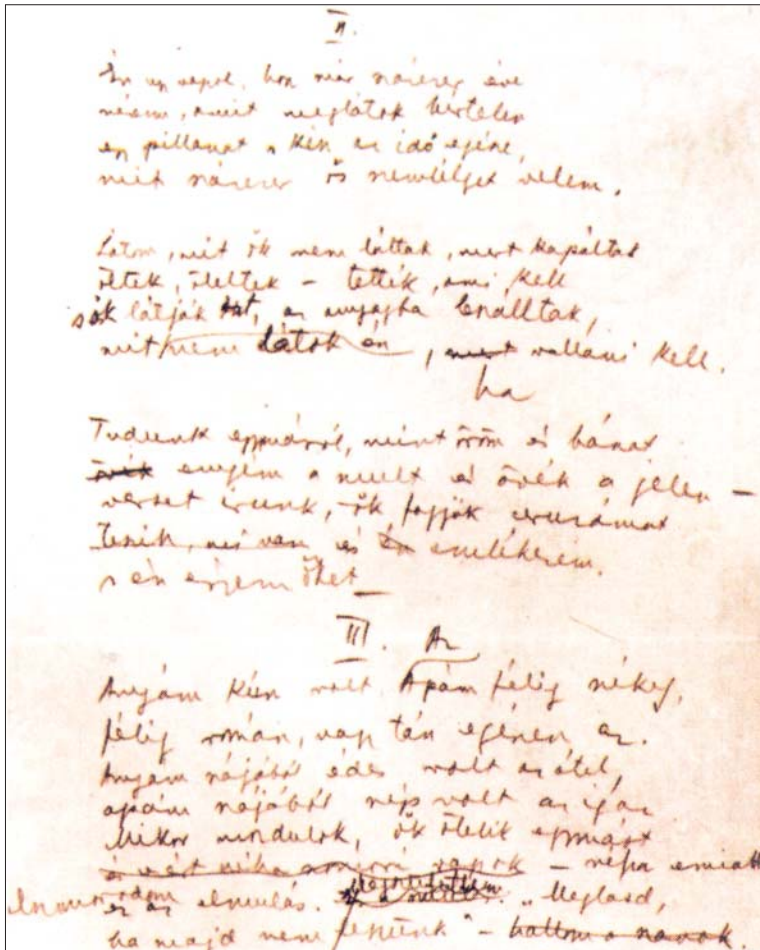 II.
Én úgy vagyok, hogy már százezer éve
nézem, amit meglátok hirtelen
egy pillanat s kész az idő egésze,
mit százezer ős szemlélget velem.
Látom, mit ők nem láttak, mert kapáltak
öltek, öleltek – tették, ami kell
s ők látják azt, az anyagba leszálltak,
mit nem látok én, mert vallani kell.
ha
Tudunk egymásról, mint öröm és bánat
övék enyém a mult és övék a jelen –
verset irunk, ők fogják ceruzámat
és én emlékezem.
s én érzem őket –
III. Az
Anyám kún volt. Apám félig székely,
félig román, vagy tán egészen az.
Anyám szájából édes volt az étel,
apám szájából szép volt az igaz
Mikor mozdulok, ők ölelik egymást
– néha emiatt
elszomorodom
ez az elmulás. „Meglásd,
ha majd nem leszünk" – hallom a szavak.